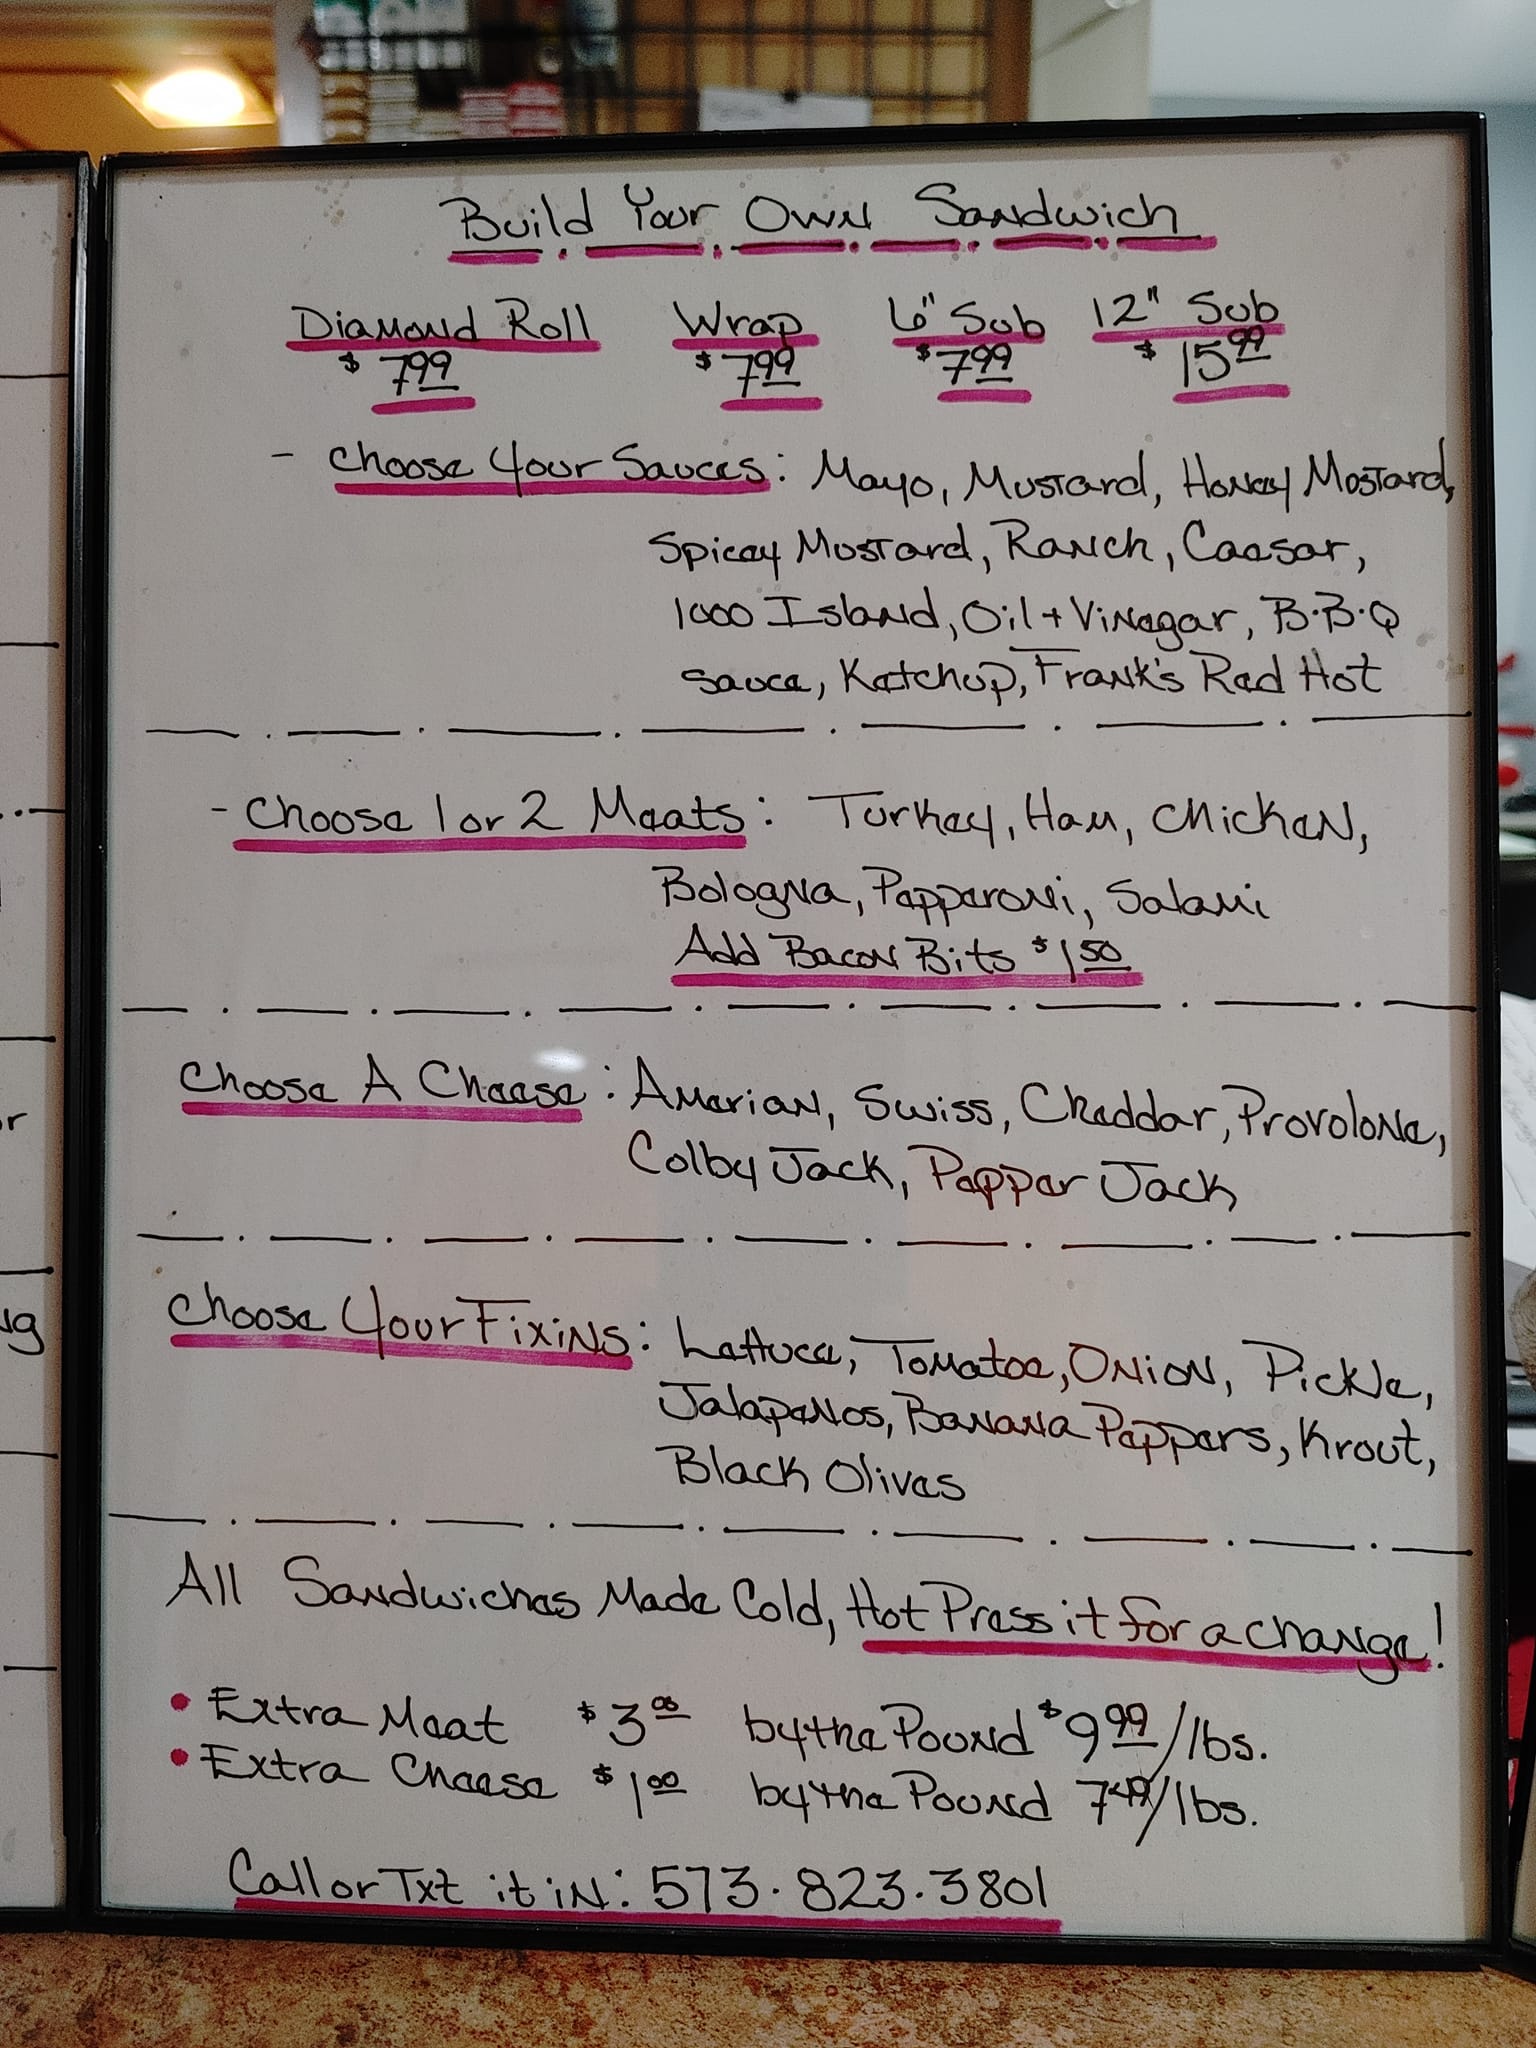 Build Your Own Sandwich
Diamond Roll Wrap 6" Sub 12" Sub
$7.99 $7.99 $7.99 $15.99
- Choose Your Sauces: Mayo, Mustard, Honey Mustard,
Spicey Mustard, Ranch, Caesar,
1000 Island, Oil + Vinegar, B.B.Q
Sauce, Ketchup, Frank's Red Hot
- Choose 1 or 2 Meats: Turkey, Ham, Chicken,
Bologna, Pepperoni, Salami
Add Bacon Bits $1.50
Choose A Cheese: Amerian, Swiss, Cheddar, Provolone,
Colby Jack, Pepper Jack
Choose Your Fixins: Lettuce, Tomatoe, Onion, Pickle,
Jalapenos, Banana Peppers, Krout,
Black Olives
All Sandwiches Made Cold, Hot Press it for a change!
• Extra Meat $3.00 by the Pound $9.99/lbs.
• Extra Cheese $1.00 by the Pound 7.49/lbs.
Call or Txt it in: 573.823.3801